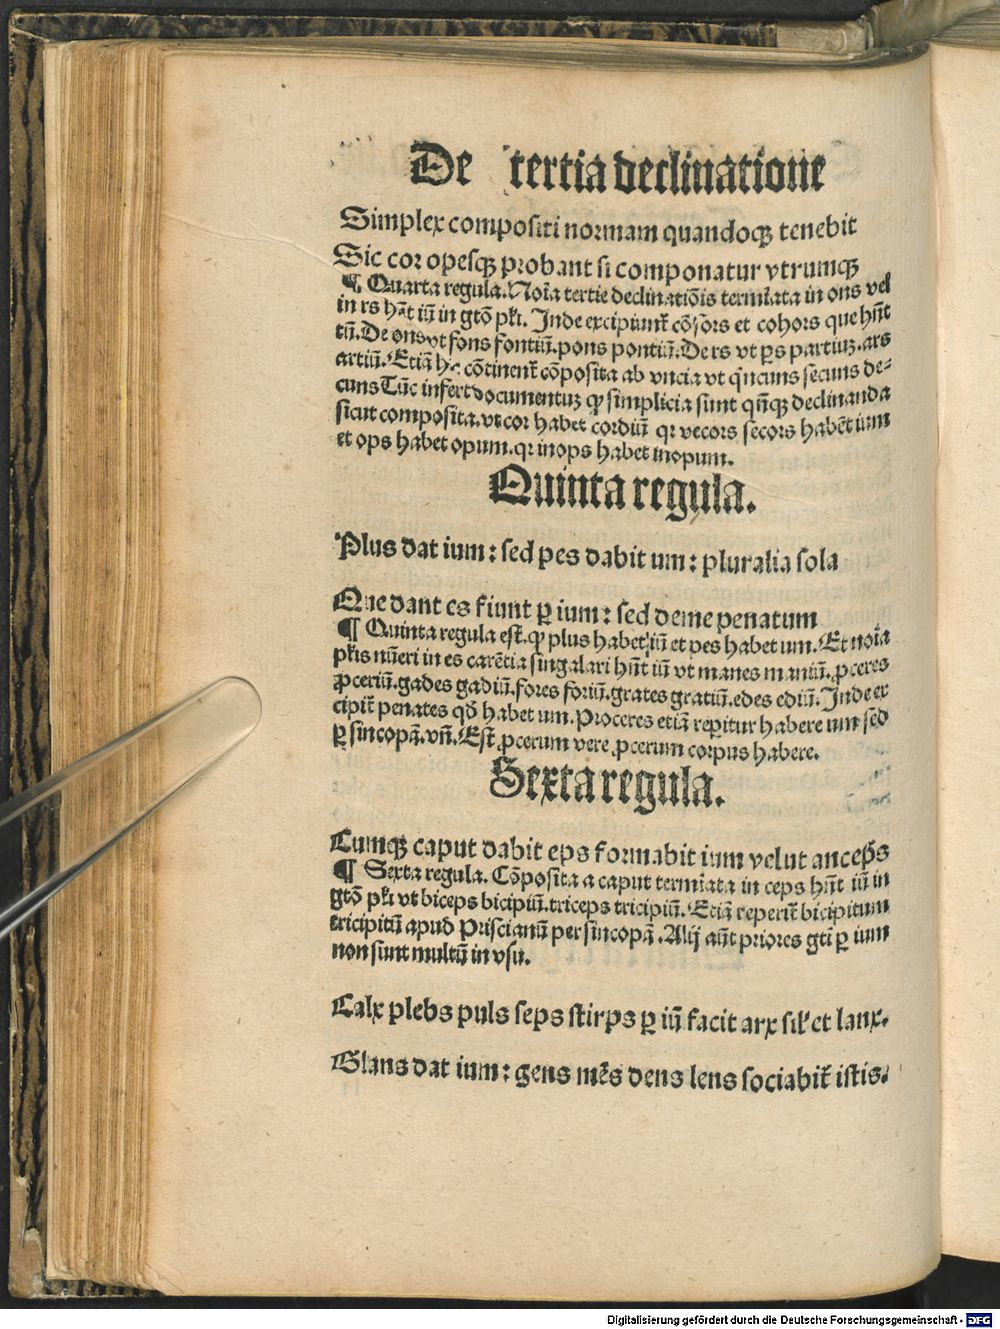 De tertia declinatione
Simplex compositi normam quandoqꝫ tenebit
Sic cor opesqꝫ probant si componatur vtrumqꝫ
¶ Quarta regula. Noīa tertie declinatiōis termīata in ons vel
in rs hñt iū in gtō pƚi. Inde excipiunt̄ cōsors et cohors que hñt
tū. De ons vt fons fontiū. pons pontiū. De rs vt ꝑs partiuꝫ. ars
artiū. Etiā hic cōtinent̄ cōposita ab vncia vt qͥncuns secuns de-
cuns Tūc infert documentuꝫ ꝙ simplicia sunt qñqꝫ declinanda
sicut composita. vt cor habet cordiū qr vecors secors habēt ium
et ops habet opum. qr inops habet inopum.
Quinta regula.
Plus dat ium: sed pes dabit um: pluralia sola
Que dant es fiunt ꝑ ium: sed deme penatum
¶ Quinta regula est. ꝙ plus habet iū et pes habet um. Et noīa
pƚis nūeri in es carētia singulari hñt iū vt manes maniū. ꝓceres
ꝓceriū. gades gadiū. fores foriū. grates gratiū. edes ediū. Inde ex
cipit̄ penates qđ habet um. Proceres etiā reꝑitur habere um sed
ꝑ sincopā. vñ. Est ꝓcerum vere ꝓcerum corpus habere.
Sexta regula.
Cumqꝫ caput dabit eps formabit ium velut anceps
¶ Sexta regula. Cōposita a caput termīata in ceps hñt iū in
gtō pƚi vt biceps bicipiū. triceps tricipiū. Etiā reperit̄ bicipitum
tricipitū apud Priscianū per sincopā. Alij aūt priores gti ꝑ ium
non sunt multū in vsu.
Calx plebs puls seps stirps ꝑ iū facit arx siƚ et lanx.
Glans dat ium: gens mēs dens lens sociabit̄ istis.
Digitalisierung gefördert durch die Deutsche Forschungsgemeinschaft - DFG